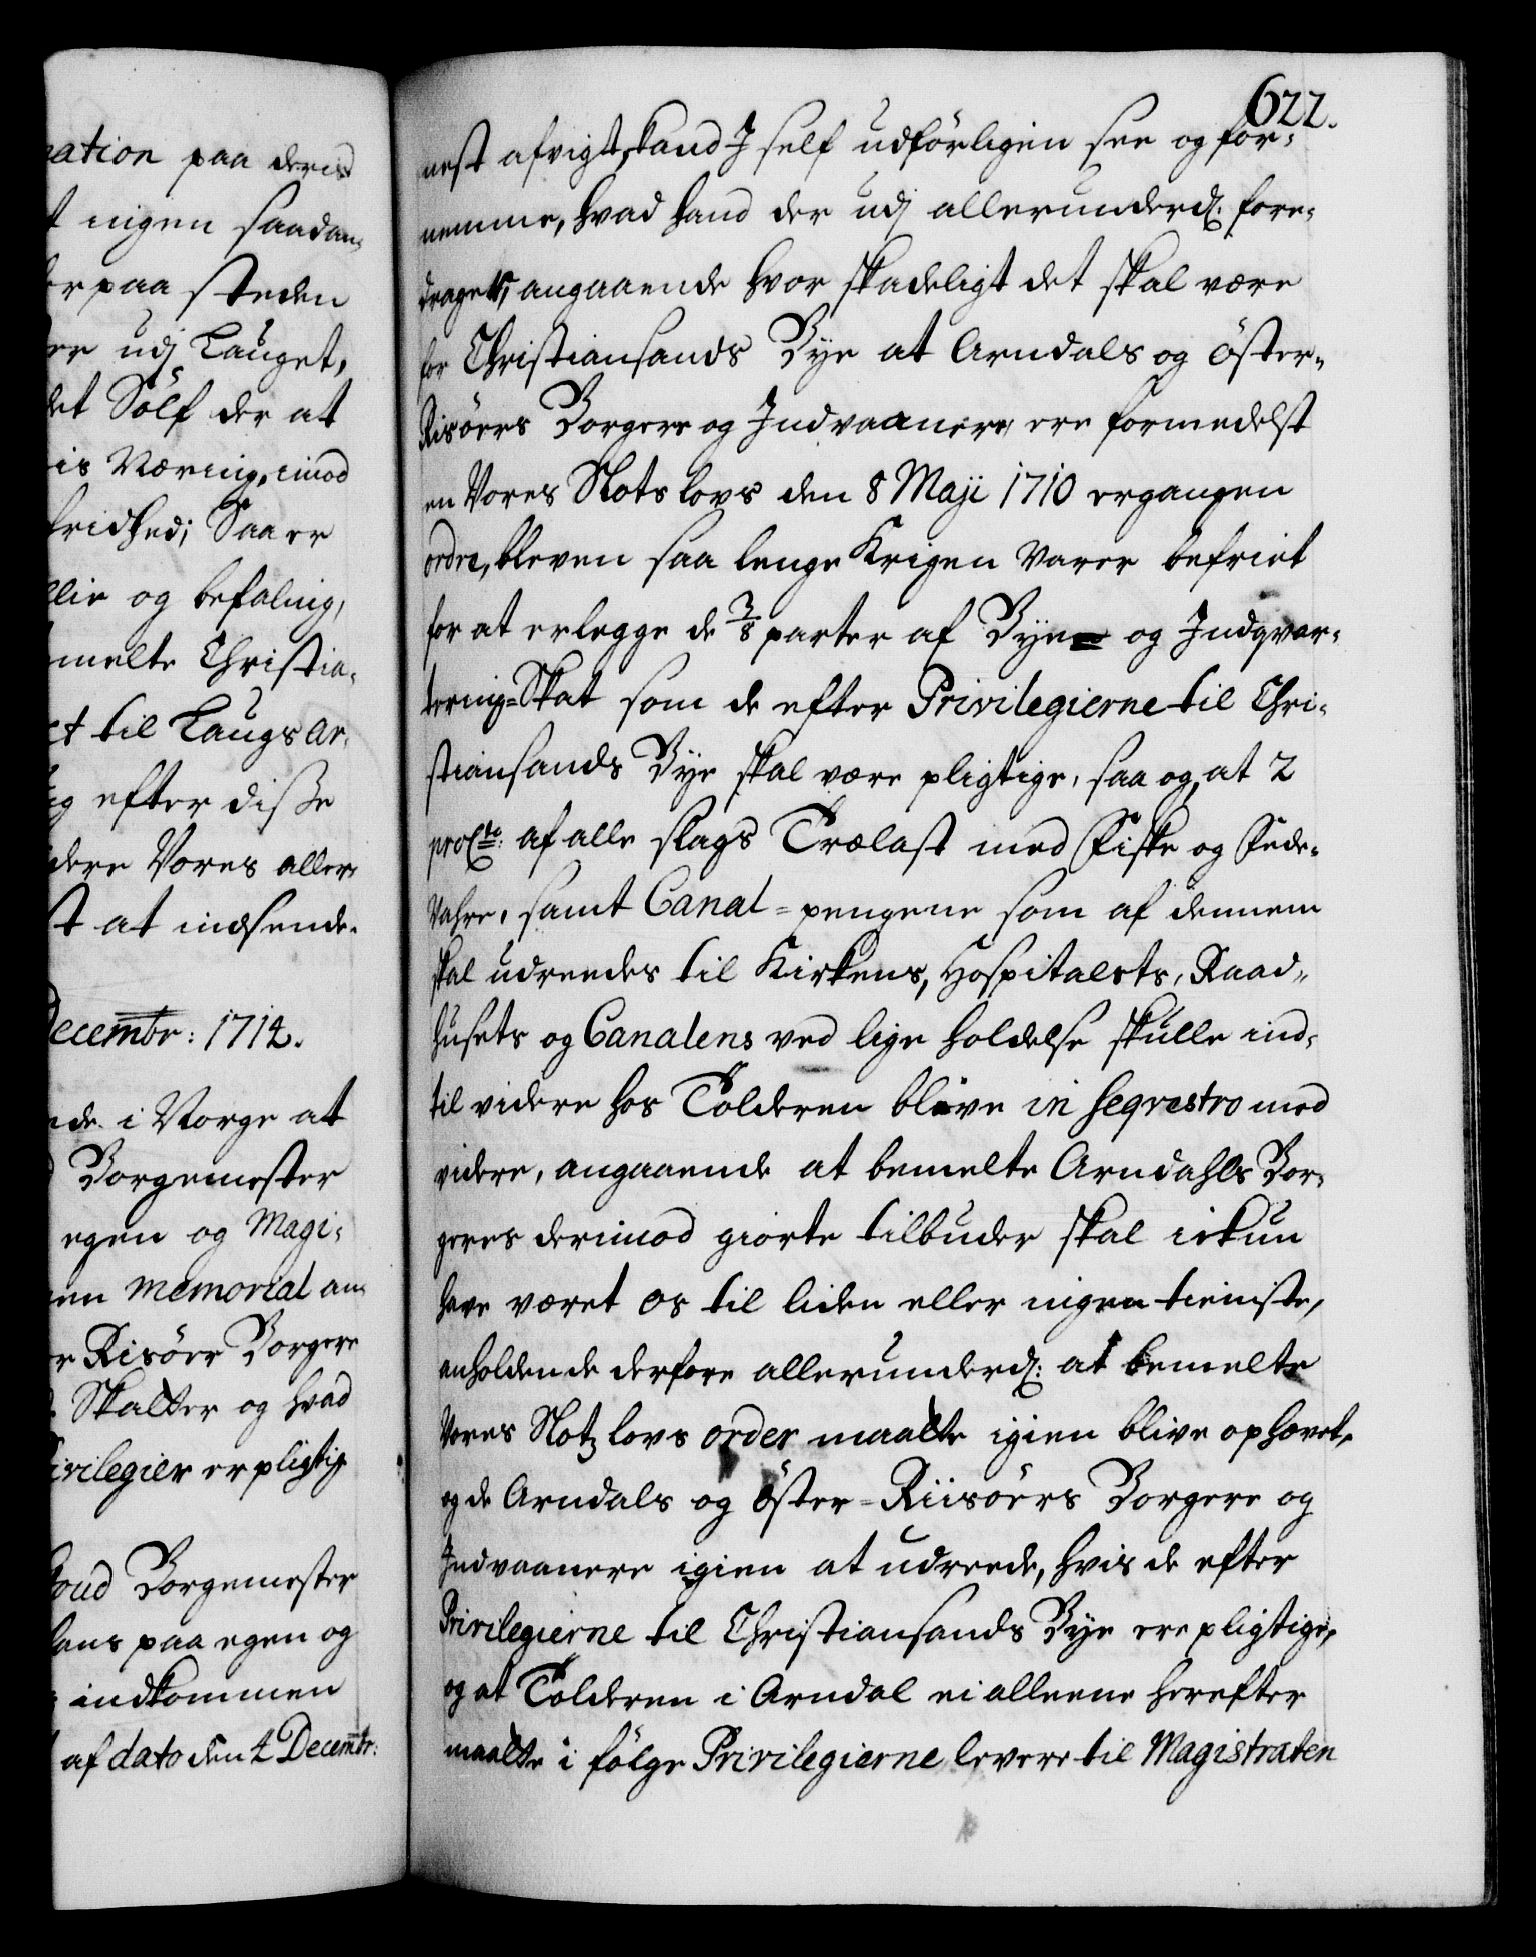 ation paa deris
t nogen saadan
er paa steden
er udj Lauget,
det Sölf der at
is Næring, imod
fridhed; Saa er
llie og befaling,
melte Christia-
et til Laugs Ar-
ig efter disse
dere Vores aller-
st at indsende.
Decembr: 1714.
nde i Norge at
Borgemester
egen og Magi-
en memorial an-
er Risöer Borgere
Skatter og hvad
Privilegier er pligtig
Borgemester
paa egen og
indkommen
af dato den 4 Decembr:
622.
nest afvigt, kand I self udförligen see og for-
nemme, hvad hand der udj allerunderd: fore-
drager, angaaende hvor skadeligt det skal være
for Christiansands Bye at Arndals og Öster-
Risöers Borgere og Indvaanere, ere formedelst
en Vores Slots lovs den 8 Maji 1710 ergangen
ordre, bleven saa lenge Krigen varer befriet
for at erlegge de 3/8 parter af Bye og Indqvar-
tering-Skat som de efter Privilegierne til Chri-
stiansands Bye skal være pligtige, saa og at 2
proCto: af alle slags Trælast med Fiske og Fede-
Vahre, samt Canal-pengene som af dennem
skal udreedes til Kirkens, Hospitalets, Raad-
husets og Canalens ved lige holdelse skulle ind-
til videre hos Tolderen blive in seqvestro med
videre, angaaende at bemelte Arndahls Bor-
geres derimod giorte tilbuder skal ickun
have været os til liden eller ingen tieniste,
anholdende derfore allerunderd: at bemelte
Vores Slotz lovs order maatte igien blive ophævet,
og de Arndals og Öster-Riisöers Borgere og
Indvaanere igien at udreede, hvis de efter
Privilegierne til Christiansands Bye ere pligtige,
og at Tolderen i Arndal ei alleene herefter
maatte i fölge Privilegierne levere til Magistraten